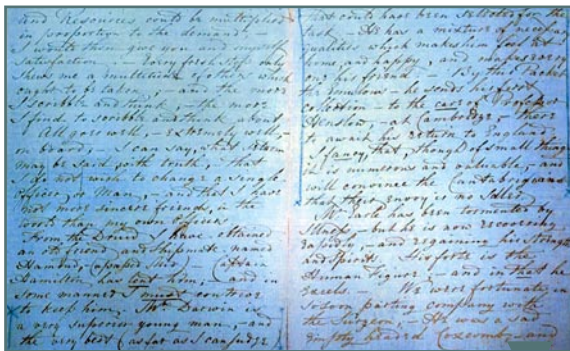 and Resources could be multiplied
in proportion to the demand. —
I would then give you and myself
satisfaction — Every fresh step only
shews me a multitude of others which
ought to be taken, — and the more
I scribble and think, — the more
I find to scribble and think about
All goes well, — extremely well, —
on board, — I can say, what seldom
may be said with truth, that
I do not wish to change a single
Officer, or Man, — and that I have
not more sincere friends in the
world than my own Officers.
From the Druid I have obtained
an old friend and shipmate named
Hamond, (passed Mid) — Captain
Hamilton has lent him, — and in
some manner I must contrive
to keep him. Mr Darwin is
a very superior young man, — and
the very best (as far as I can judge)
that could have been selected for the
task. — He has a mixture of necessary
qualities which makes him feel at
home, and happy, and makes every
one his friend — By this Packet
the Emulous — he sends his first
collection — to the care of Professor
Henslow — at Cambridge — there
to await his return to England
I fancy, that, though of small things
it is numerous and valuable, — and
will convince the Cantabrigians
that their Envoy is no Idler.
Mr Earle has been tormented by
Illness — but he is now recovering
rapidly, — and regaining his strength
and Spirits. His forte is the
Human Figure, — and in that he
excels. — We were fortunate in
so soon parting company with
the Surgeon, — He was a sad
empty headed Coxcomb — and